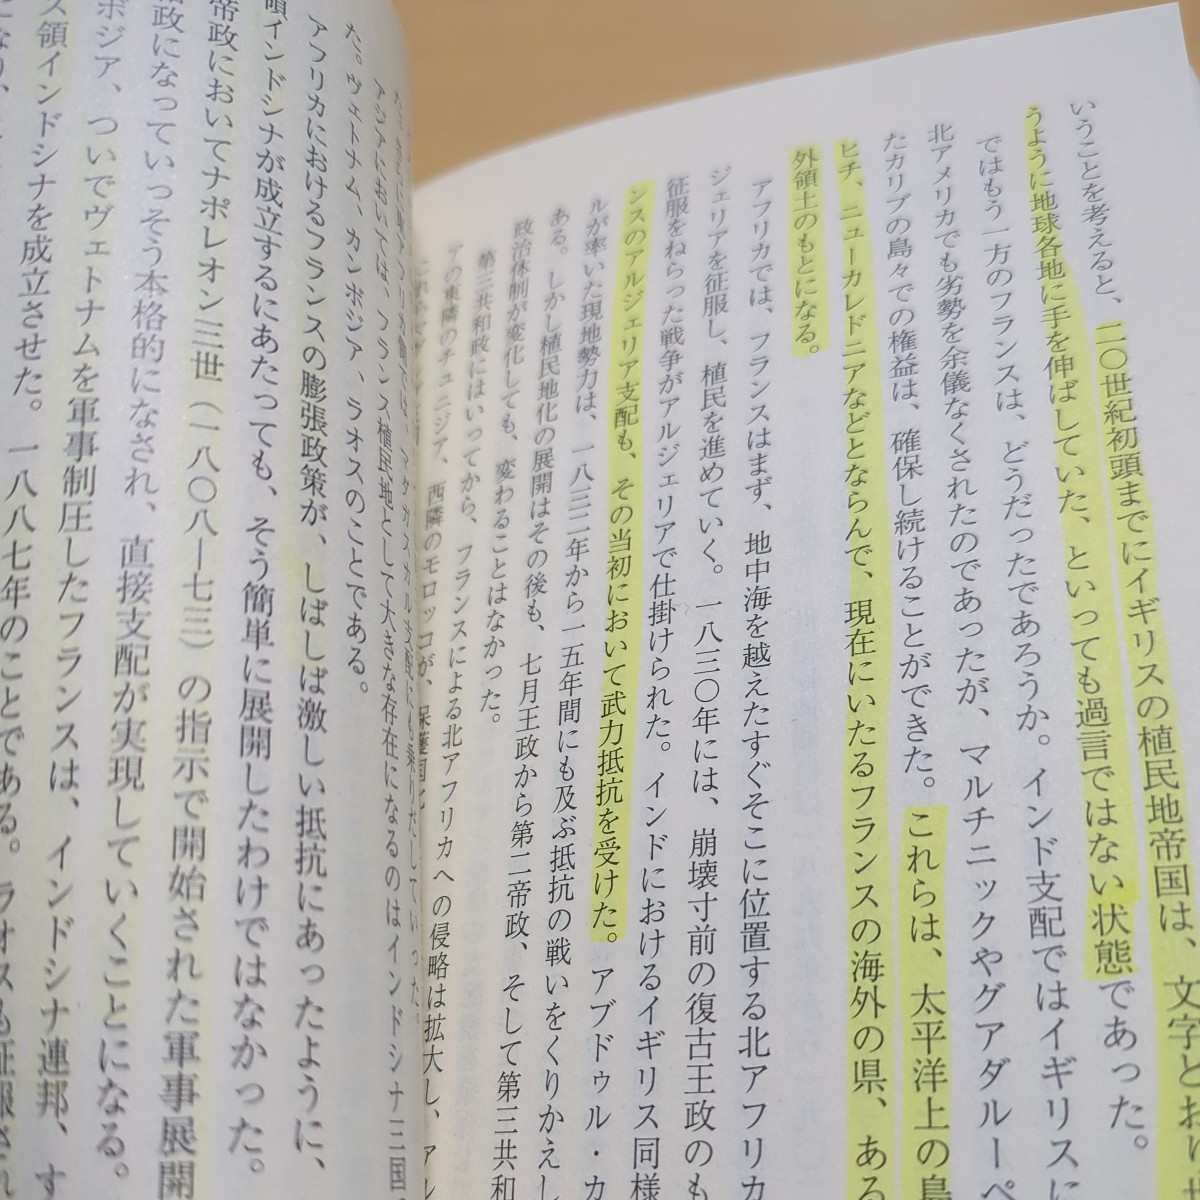 いうことを考えると、二〇世紀初頭までにイギリスの植民地帝国は、文字どおり
うように地球各地に手を伸ばしていた、といっても過言ではない状態であった。
ではもう一方のフランスは、どうだったであろうか。インド支配ではイギリスに
北アメリカでも劣勢を余儀なくされたのであったが、マルチニックやグアダルーペ
たカリブの島々での権益は、確保し続けることができた。これらは、太平洋上の島
ヒチ、ニューカレドニアなどとならんで、現在にいたるフランスの海外の県、ある
外領土のもとになる。
アフリカでは、フランスはまず、地中海を越えたすぐそこに位置する北アフリカ
ジェリアを征服し、植民を進めていく。一八三〇年には、崩壊寸前の復古王政のも
征服をねらった戦争がアルジェリアで仕掛けられた。インドにおけるイギリス同様
ンスのアルジェリア支配も、その当初において武力抵抗を受けた。アブドゥル・カ
ルが率いた現地勢力は、一八三二年から一五年間にも及ぶ抵抗の戦いをくりかえし
ある。しかし植民地化の展開はその後も、七月王政から第二帝政、そして第三共和
政治体制が変化しても、変わることはなかった。
第三共和政にはいってから、フランスによる北アフリカへの侵略は拡大し、アル
アの東隣のチュニジア、西隣のモロッコが、保護国化
マダガスカル支配にも乗りだしていった。
アジアにおいては、フランス植民地として大きな存在になるのはインドシナ三国
た。ヴェトナム、カンボジア、ラオスのことである。
アフリカにおけるフランスの膨張政策が、しばしば激しい抵抗にあったように、
領インドシナが成立するにあたっても、そう簡単に展開したわけではなかった。
帝政においてナポレオン三世（一八〇八―七三）の指示で開始された軍事展開
政になっていっそう本格的になされ、直接支配が実現していくことになる。
ボジア、ついでヴェトナムを軍事制圧したフランスは、インドシナ連邦、す
ス領インドシナを成立させた。一八八七年のことである。ラオスも征服され